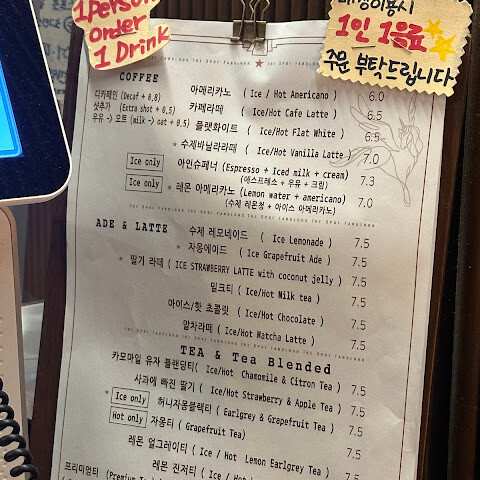 1Person
order
1 Drink
매장이용시
1인 1음료
주문 부탁드립니다
COFFEE
디카페인 (Decaf + 0.8)
샷추가 (Extra shot + 0.5)
우유 -> 오트 (milk -> oat + 0.5)
아메리카노 ( Ice / Hot Americano ) 6.0
카페라떼 ( Ice/Hot Cafe Latte ) 6.5
플랫화이트 ( Ice/Hot Flat White ) 6.5
* 수제바닐라라떼 ( Ice/Hot Vanilla Latte ) 7.0
Ice only 아인슈페너 (Espresso + Iced milk + cream) 7.3
(에스프레소 + 우유 + 크림)
Ice only * 레몬 아메리카노 (Lemon water + americano) 7.0
(수제 레몬청 + 아이스 아메리카노)
ADE & LATTE
수제 레모네이드 ( Ice Lemonade ) 7.5
* 자몽에이드 ( Ice Grapefruit Ade ) 7.5
* 딸기 라떼 ( ICE STRAWBERRY LATTE with coconut jelly ) 7.5
밀크티 ( Ice/Hot Milk tea ) 7.5
아이스/핫 초콜릿 ( Ice/Hot Chocolate ) 7.5
말차라떼 ( Ice/Hot Matcha Latte ) 7.5
TEA & Tea Blended
카모마일 유자 블랜딩티( Ice/Hot Chamomile & Citron Tea ) 7.5
사과에 빠진 딸기 ( Ice/Hot Strawberry & Apple Tea ) 7.5
* Ice only 허니자몽블랙티 ( Earlgrey & Grapefruit Tea ) 7.5
Hot only 자몽티 ( Grapefruit Tea) 7.5
레몬 얼그레이티 ( Ice / Hot Lemon Earlgrey Tea ) 7.5
레몬 진저티 ( Ice /
프리미엄티 (Premium